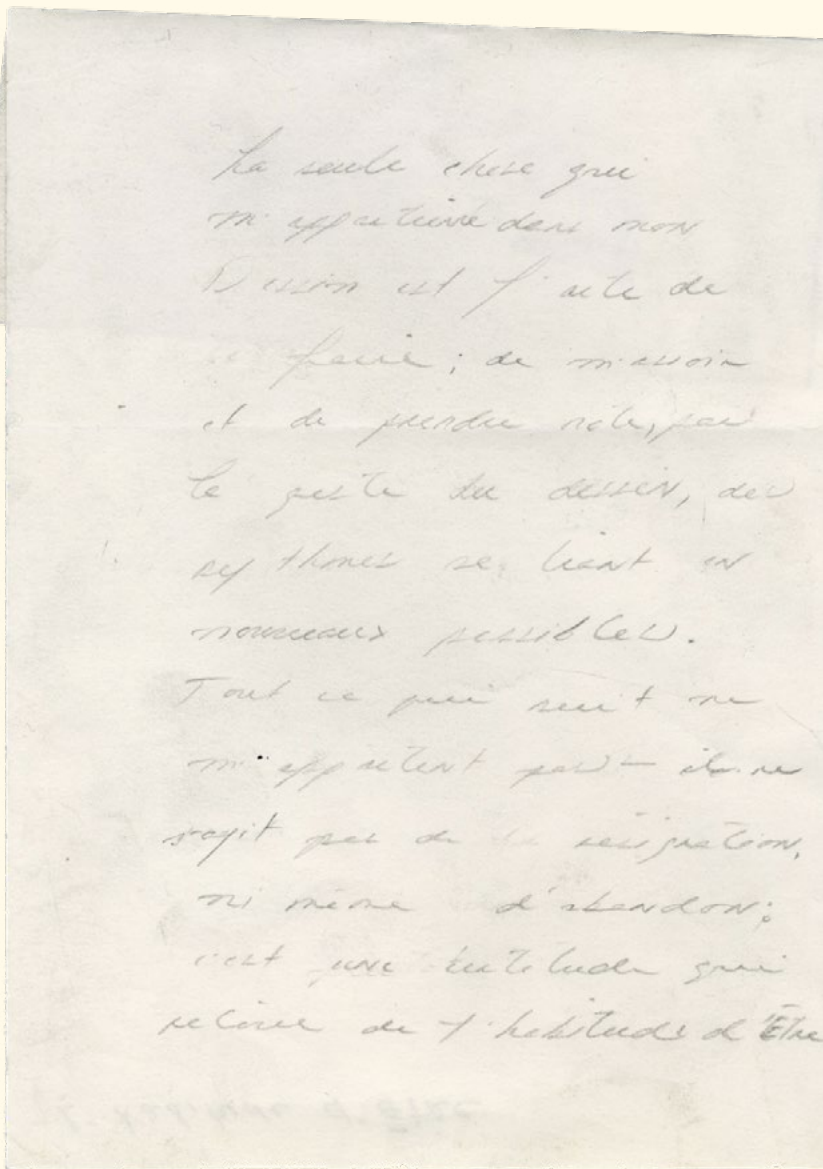 La seule chose qui
m'appartienne dans mon
Dessin est l'acte de
faire ; de m'assoir
et de prendre note, par
le geste du dessin, des
rythmes se liant en
nouveaux possibles.
Tout ce qui suit ne
m'appartient pas - il ne
s'agit pas de la résignation,
ni même d'abandon ;
c'est une qui
retirée de l'habitude d'Être